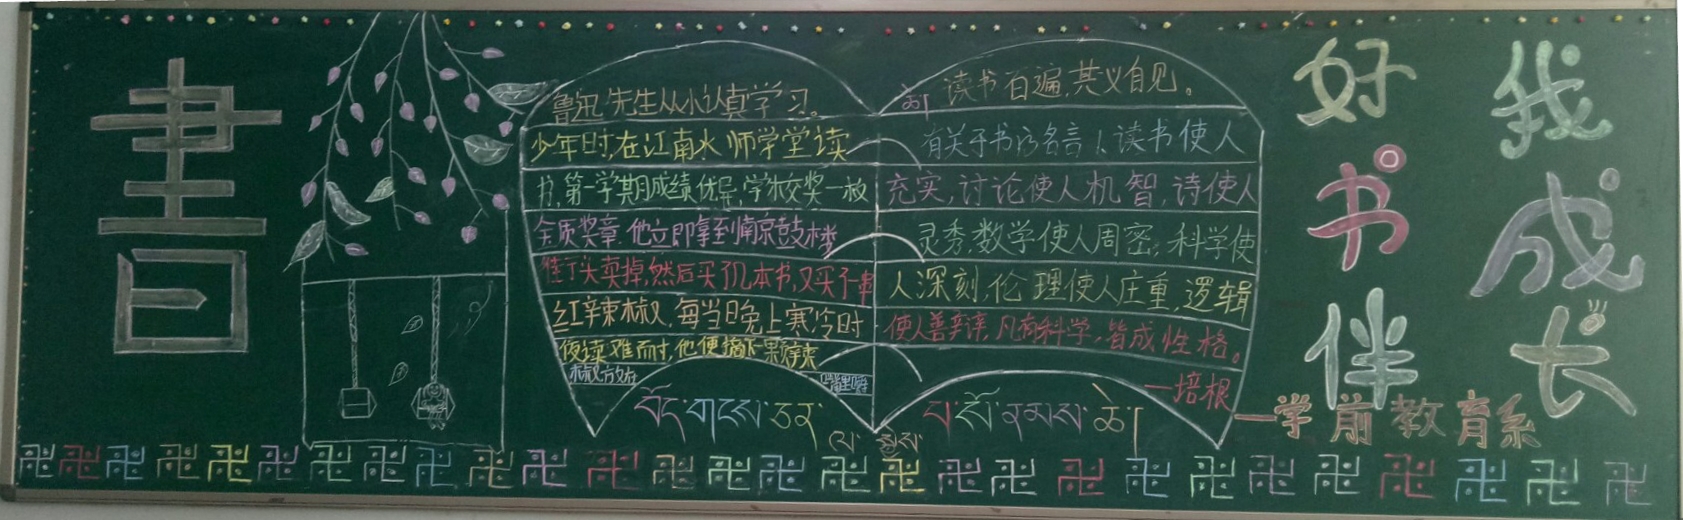 書
鲁迅先生从小认真学习。
少年时,在江南水师学堂读
书,第一学期成绩优异,学校奖一枚
金质奖章.他立即拿到南京鼓楼
街头卖掉,然后买了几本书,又买了一串
红辛束椒,每当晚上寒冷时
夜读难而时,他便摘下一颗辣束
椒放在
嘴里嚼
读书百遍,其义自见。
有关于书的名言1、读书使人
充实,讨论使人机智,诗使人
灵秀,数学使人周密,科学使
人深刻,伦理使人庄重,逻辑
使人善辩,凡有科学,皆成性格。
—培根
བོད་གངས་ཅན་
པ་
好书伴
我成长
—学前教育系